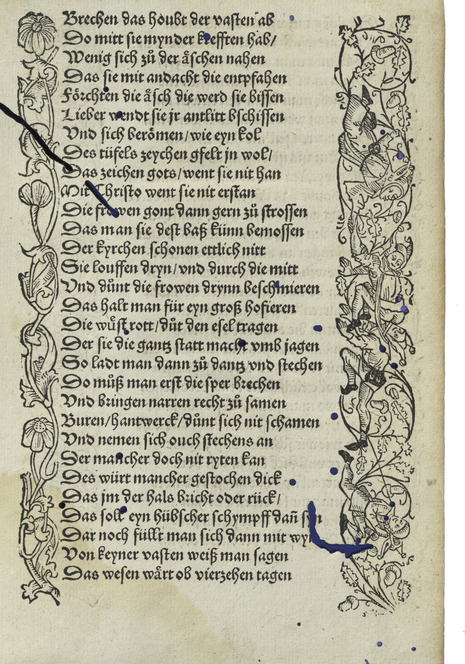 Brechen das houbt der vasten ab
Do mitt sie mynder krefften hab/
Wenig sich zuͦ der aͤschen nahen
Das sie mit andacht die entpfahen
Foͤrchten die aͤsch die werd sie bissen
Lieber wendt sie jr antlitt bschissen
Vnd sich beroͤmen/wie eyn kol
Des tüfels zeychen gfelt jn wol/
Das zeichen gots/went sie nit han
Mit Christo went sie nit erstan
Die frowen gont dann gern zuͦ strossen
Das man sie dest baß künn bemossen
Der kyrchen schonen ettlich nitt
Sie louffen dryn/vnd durch die mitt
Vnd dünt die frowen drynn beschmieren
Das halt man für eyn groß hofieren
Die wuͤst rott/duͦt den esel tragen
Der sie die gantz statt macht vmb jagen
So ladt man dann zuͦ dantz vnd stechen
Do muͦß man erst die sper brechen
Vnd bringen narren recht zuͦ samen
Buren/hantwerck/duͤnt sich nit schamen
Vnd nemen sich ouch stechens an
Der mancher doch nit ryten kan
Des würt mancher gestochen dick
Das jm der hals bricht oder rück/
Das soll eyn hübscher schympff dañ
Dar noch füllt man sich dann mit
Von keyner vasten weiß man sagen
Das wesen waͤrt ob vierzehen tagen